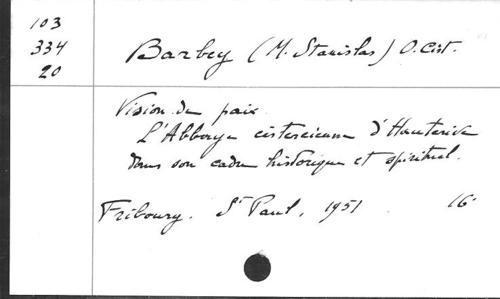 103
334
20
Barbey (M. Stanislas) O. Cist.
Vision de paix.
L'Abbaye cistercienne d'Hauterive
dans son cadre historique et spirituel.
Fribourg. St Paul, 1951 16°